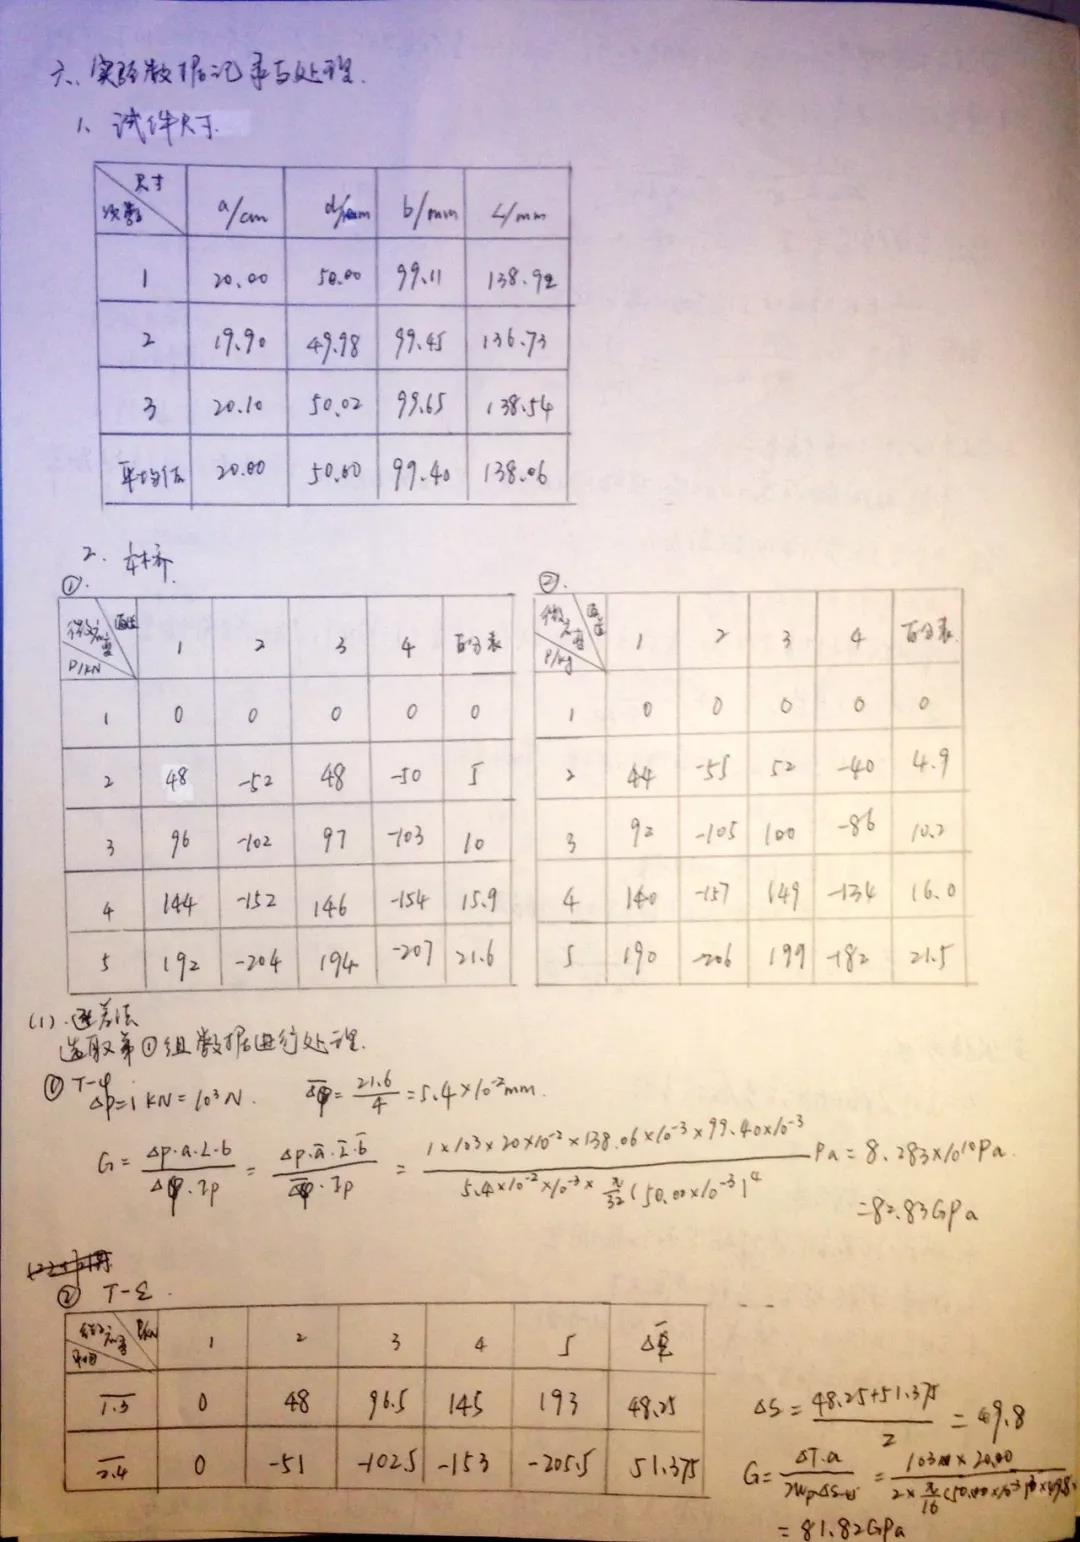 六、实验数据记录与处理.
1、试件尺寸
尺寸 次数 a/cm d/mm b/mm L/mm
1 20.00 50.00 99.11 138.92
2 19.90 49.98 99.45 136.73
3 20.10 50.02 99.65 138.54
平均值 20.00 50.00 99.40 138.06
2. 半桥
①.
微应变 通道 P/kN 1 2 3 4 百分表
1 0 0 0 0 0
2 48 -52 48 -50 5
3 96 -102 97 -103 10
4 144 -152 146 -154 15.9
5 192 -204 194 -207 21.6
②.
微应变 通道 P/kg 1 2 3 4 百分表.
1 0 0 0 0 0
2 44 -55 52 -40 4.9
3 92 -105 100 -86 10.2
4 140 -157 149 -134 16.0
5 190 -206 199 -182 21.5
(1).逐差法
选取第①组数据进行处理.
① T-φ
Δp=1KN=10³N. Δφ̄=21.6/4=5.4×10⁻²mm.
G=Δp·a·L·b/Δφ·Ip=Δp·ā·L̄·b̄/Δφ̄·Ip=1×10³×20×10⁻²×138.06×10⁻³×99.40×10⁻³/5.4×10⁻²×10⁻³×π/32(50.00×10⁻³)⁴ Pa=8.283×10¹⁰Pa.
=82.83GPa
② T-ε.
微应变 P/kN 1 2 3 4 5 Δε̄
1.3 0 48 96.5 145 193 48.25
2.4 0 -51 -102.5 -153 -205.5 51.375
Δε=48.25+51.375/2=49.8
G=ΔT·a/2WpΔε=10³N×20.00/2×π/16(50.00×10⁻³)³×49.8
=81.82GPa